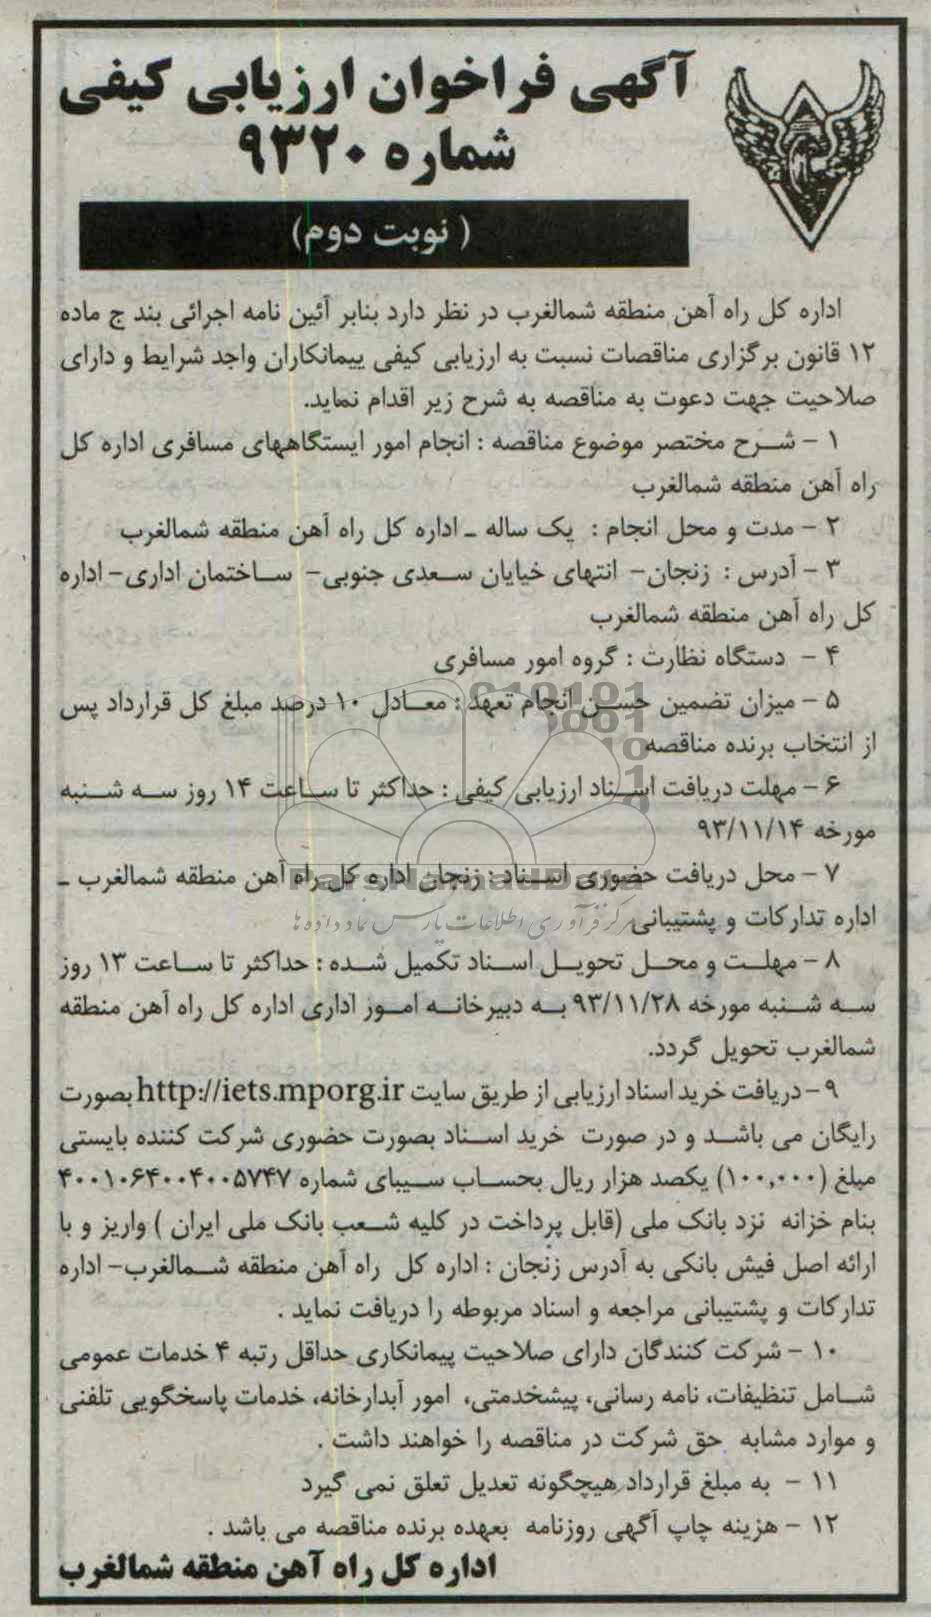 آگهی فراخوان ارزیابی کیفی
شماره ۹۳۲۰
( نوبت دوم)
اداره کل راه آهن منطقه شمالغرب در نظر دارد بنابر آئین نامه اجرائی بند ج ماده
۱۲ قانون برگزاری مناقصات نسبت به ارزیابی کیفی پیمانکاران واجد شرایط و دارای
صلاحیت جهت دعوت به مناقصه به شرح زیر اقدام نماید.
۱ - شرح مختصر موضوع مناقصه : انجام امور ایستگاههای مسافری اداره کل
راه آهن منطقه شمالغرب
۲ - مدت و محل انجام : یک ساله ـ اداره کل راه آهن منطقه شمالغرب
۳ - آدرس : زنجان- انتهای خیایان سعدی جنوبی- ساختمان اداری- اداره
کل راه آهن منطقه شمالغرب
۴ - دستگاه نظارت : گروه امور مسافری
۵ - میزان تضمین حسن انجام تعهد : معادل ۱۰ درصد مبلغ کل قرارداد پس
از انتخاب برنده مناقصه
۶ - مهلت دریافت اسناد ارزیابی کیفی : حداکثر تا ساعت ۱۴ روز سه شنبه
مورخه ۹۳/۱۱/۱۴
۷ - محل دریافت حضوری اسناد : زنجان اداره کل راه آهن منطقه شمالغرب ـ
اداره تدارکات و پشتیبانی
ParsNamadData
مرکز فرآوری اطلاعات پارس نماد داده ها
۸ - مهلت و محل تحویل اسناد تکمیل شده : حداکثر تا ساعت ۱۳ روز
سه شنبه مورخه ۹۳/۱۱/۲۸ به دبیرخانه امور اداری اداره کل راه آهن منطقه
شمالغرب تحویل گردد.
۹ - دریافت خرید اسناد ارزیابی از طریق سایت http://iets.mporg.ir بصورت
رایگان می باشد و در صورت خرید اسناد بصورت حضوری شرکت کننده بایستی
مبلغ (۱۰۰,۰۰۰) یکصد هزار ریال بحساب سیبای شماره ۴۰۰۱۰۶۴۰۰۴۰۰۵۷۴۷
بنام خزانه نزد بانک ملی (قابل پرداخت در کلیه شعب بانک ملی ایران ) واریز و با
ارائه اصل فیش بانکی به آدرس زنجان : اداره کل راه آهن منطقه شمالغرب- اداره
تدارکات و پشتیبانی مراجعه و اسناد مربوطه را دریافت نماید .
۱۰ - شرکت کنندگان دارای صلاحیت پیمانکاری حداقل رتبه ۴ خدمات عمومی
شامل تنظیفات، نامه رسانی، پیشخدمتی، امور آبدارخانه، خدمات پاسخگویی تلفنی
و موارد مشابه حق شرکت در مناقصه را خواهند داشت .
۱۱ - به مبلغ قرارداد هیچگونه تعدیل تعلق نمی گیرد
۱۲ - هزینه چاپ آگهی روزنامه بعهده برنده مناقصه می باشد .
اداره کل راه آهن منطقه شمالغرب